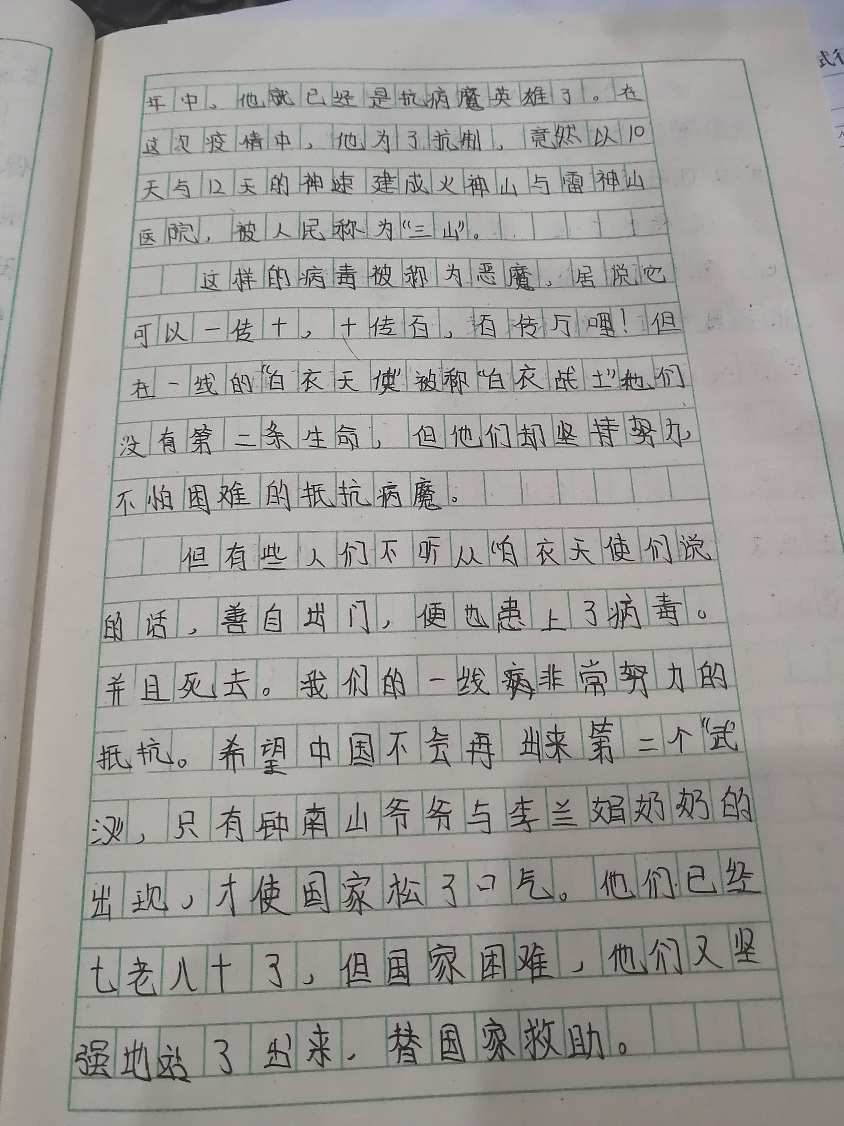 年中，他就已经是抗病魔英雄了。在
这次疫情中，他为了抗制，竟然以10
天与12天的神速建成火神山与雷神山
医院，被人民称为“三山”。
这样的病毒被称为恶魔，居说它
可以一传十，十传百，百传万哩！但
在一线的“白衣天使”被称“白衣战士”他们
没有第二条生命，但他们却坚持努力，
不怕困难的抵抗病魔。
但有些人们不听从“白衣天使们说
的话，善自出门，便也患上了病毒。
并且死去。我们的一线病非常努力的
抵抗。希望中国不会再出来第二个“武
汉，只有钟南山爷爷与李兰娟奶奶的
出现，才使国家松了口气。他们已经
七老八十了，但国家困难，他们又坚
强地站了出来，替国家救助。